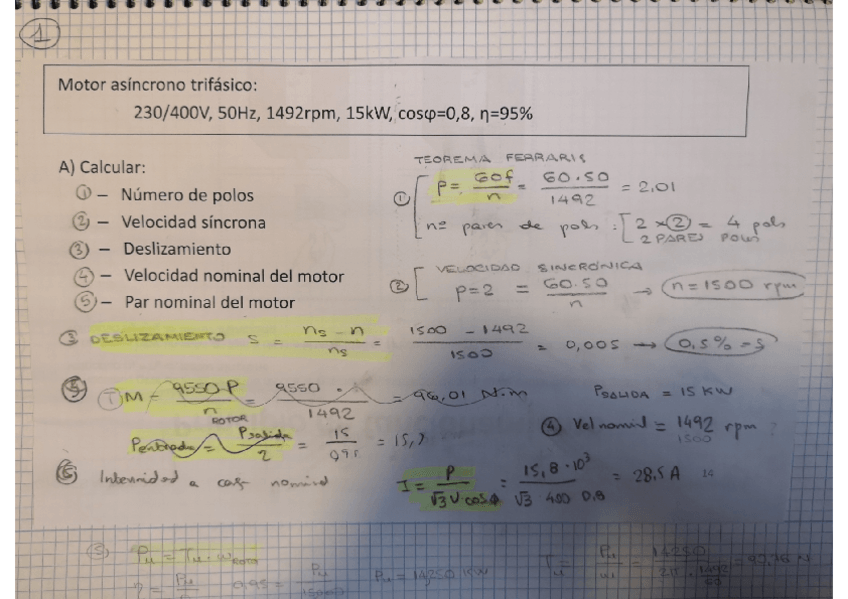 1
Motor asíncrono trifásico:
230/400V, 50Hz, 1492rpm, 15kW, cosφ=0,8, η=95%
A) Calcular:
① – Número de polos
② – Velocidad síncrona
③ – Deslizamiento
④ – Velocidad nominal del motor
⑤ – Par nominal del motor
TEOREMA FERRARIS
① P = 60f / n = 60·50 / 1492 = 2,01
nº pares de pols : 2 x ② = 4 pols
2 PARES POLOS
VELOCIDAD SINCRÓNICA
② P=2 = 60·50 / n → n = 1500 rpm
③ DESLIZAMIENTO S = ns - n / ns = 1500 - 1492 / 1500 = 0,005 → 0,5% = S
⑤ M = 9550·P / n ROTOR = 9550 · / 1492 = 96,01 N·m
PSALIDA = 15 KW
④ Vel nominal = 1492 rpm ?
1500
Pentrada = Psalida / η = 15 / 0,95 = 15,7
⑥ Intensidad a nominal
I = P / √3 V cosφ = 15,8·10³ / √3 400 0.8 = 28,5 A
14
⑤ Pu = Tu · wROTOR
η = Pu / = 0,95 = Pu / 15000 Pu = 14,250 KW
Tu = Pu / = 14250 / 2π · 1492 / 60